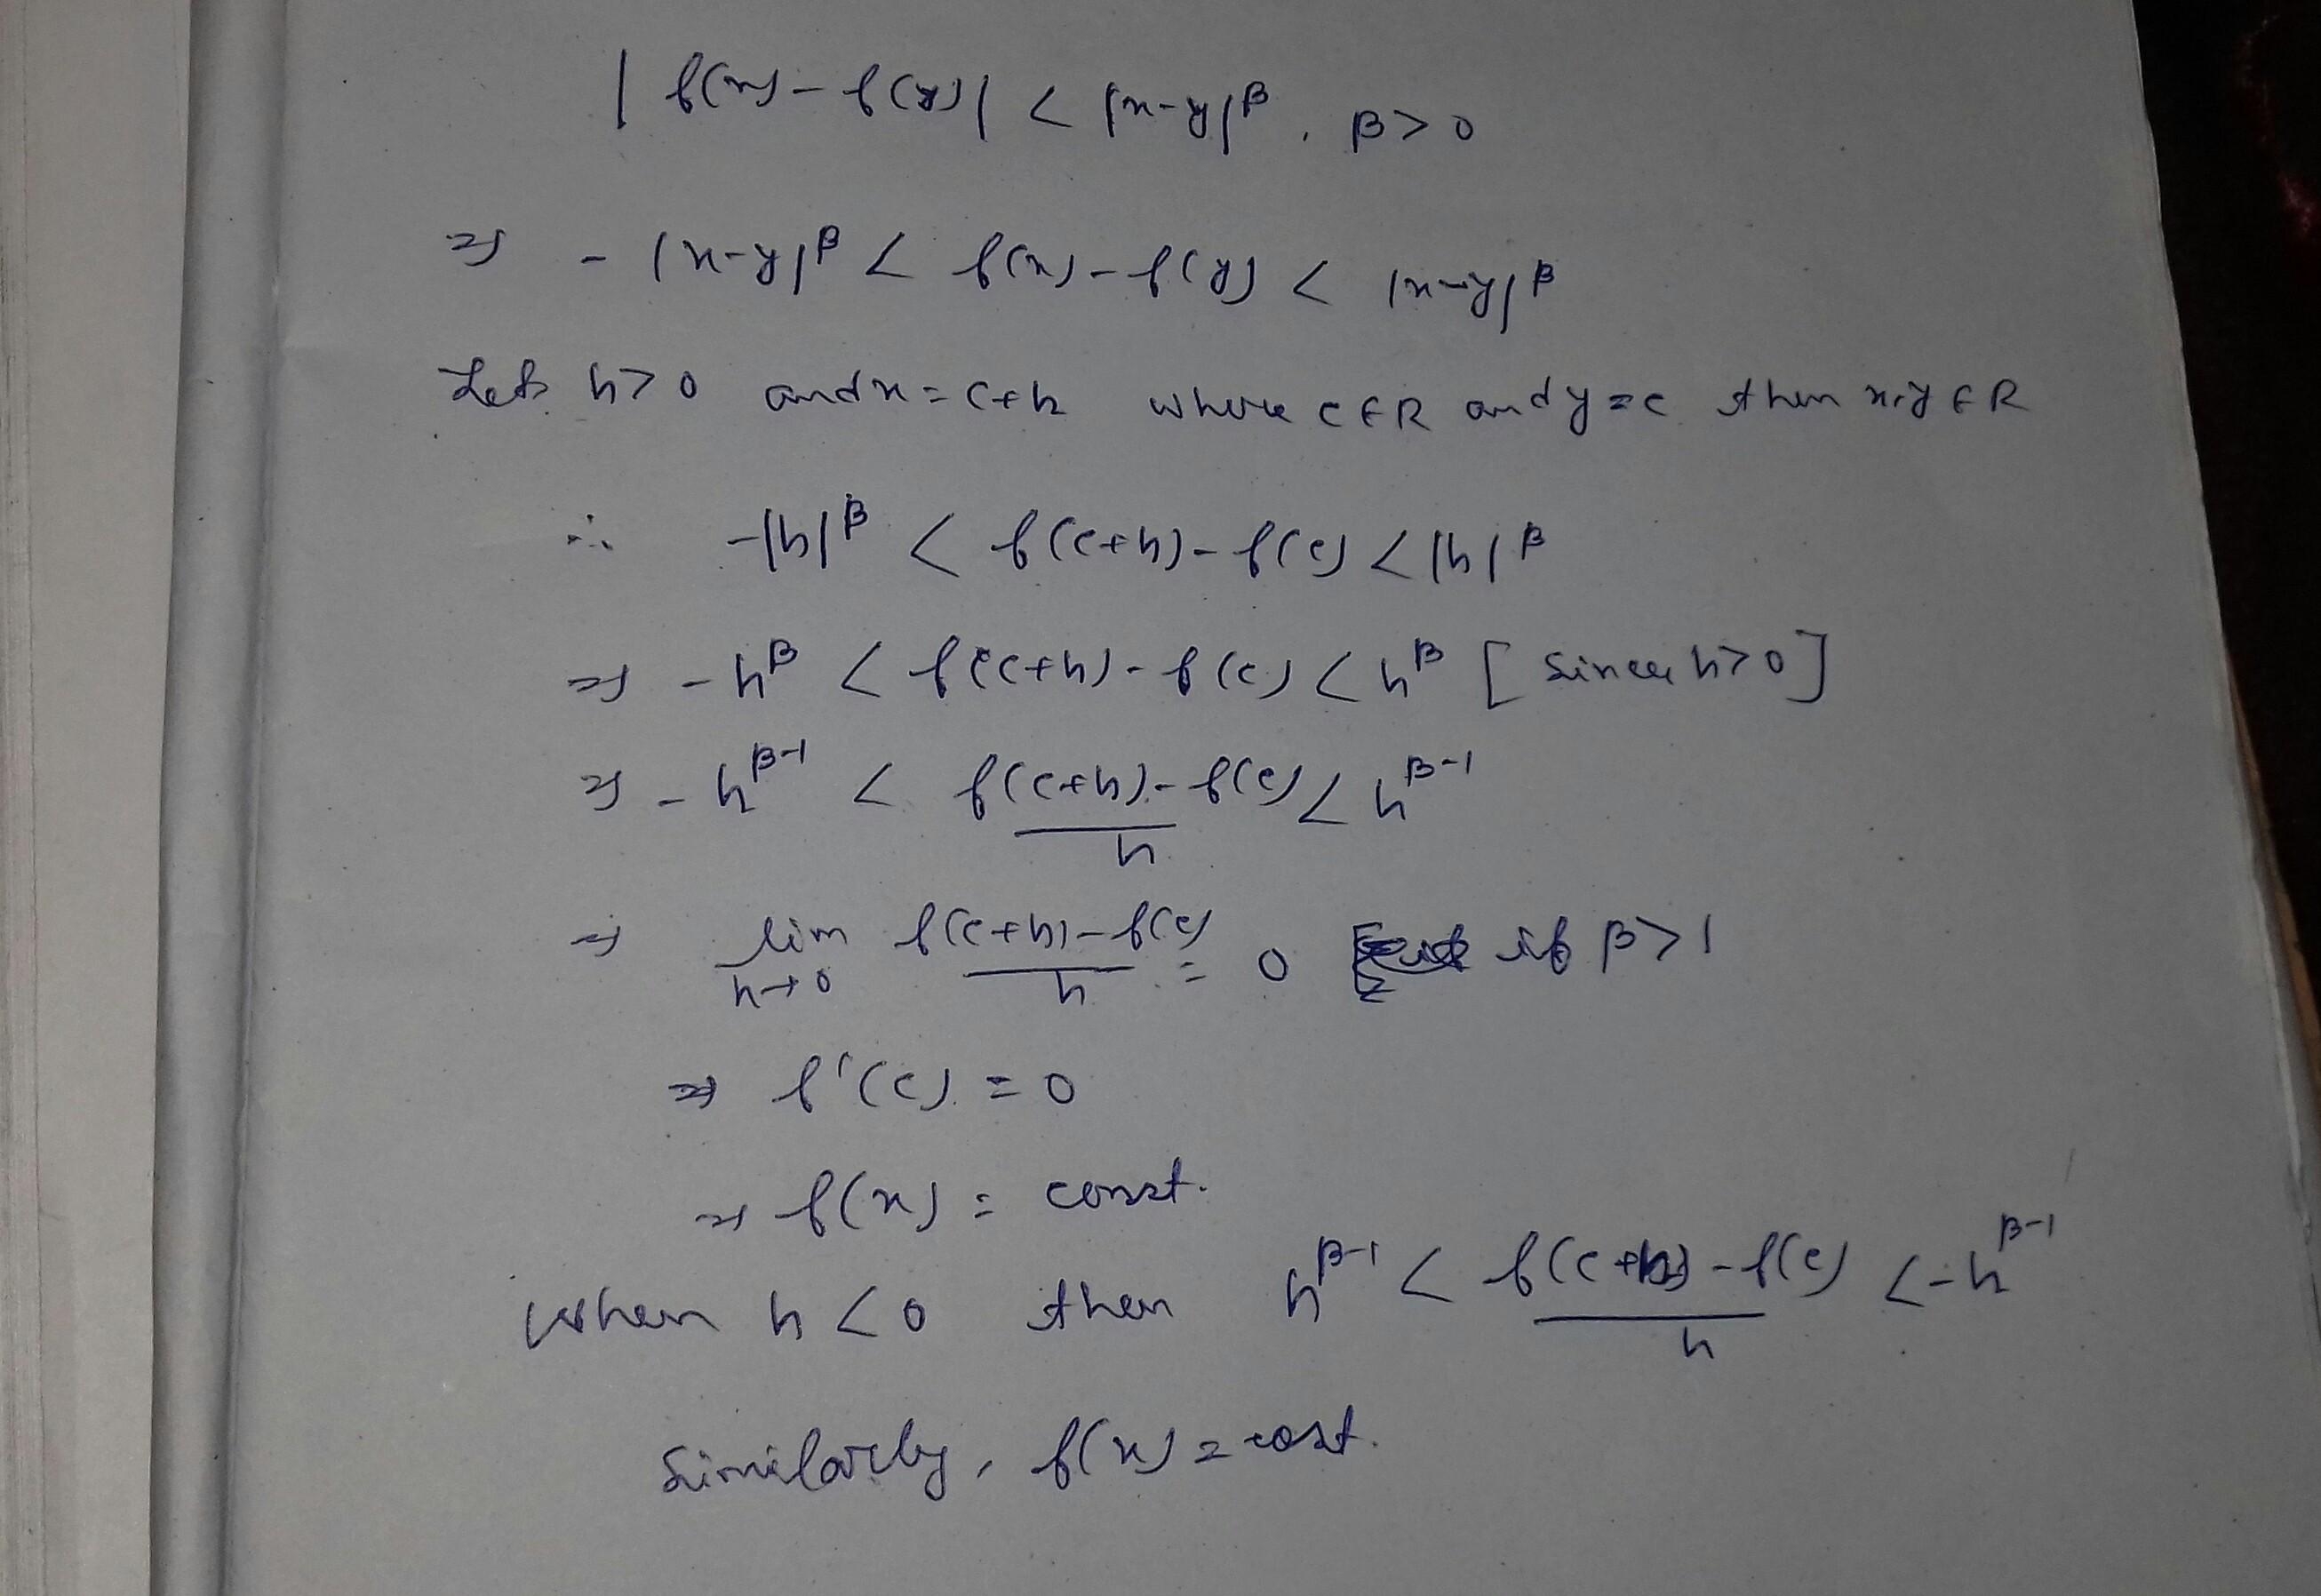 |f(x)-f(y)| < |x-y|^β, β>0
⇒ -|x-y|^β < f(x)-f(y) < |x-y|^β
Let h>0 and x=c+h where c∈R and y=c then x,y∈R
∴ -|h|^β < f(c+h)-f(c) < |h|^β
⇒ -h^β < f(c+h)-f(c) < h^β [since h>0]
⇒ -h^(β-1) < (f(c+h)-f(c))/h < h^(β-1)
⇒ lim h→0 (f(c+h)-f(c))/h = 0 if β>1
⇒ f'(c) = 0
⇒ f(x) = const.
when h<0 then h^(β-1) < (f(c+h)-f(c))/h < -h^(β-1)
Similarly, f(x) = cost.